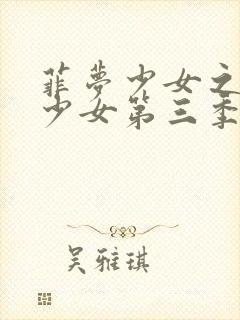 菲梦少女之
少女第三季
吴雅琪